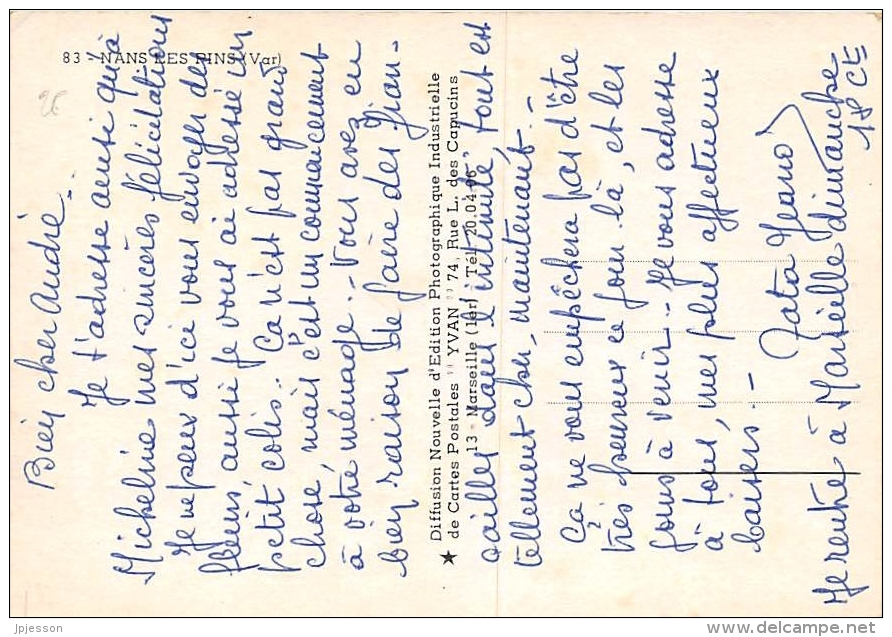 83 - NANS LES PINS (Var)
Bien cher André -
Je t'adresse ainsi qu'à
Micheline mes sincères félicitations
Je ne peux d'ici vous envoyer des
fleurs, aussi je vous ai adressé un
petit colis - Ça n'est pas grand
chose, mais c'est un commencement
à votre ménage - Vous avez eu
bien raison de faire des fian-
çailles dans l'intimité, tout est
tellement cher, maintenant. -
Ça ne vous empêchera pas d'être
très heureux ce jour là, et les
jours à venir - Je vous adresse
à tous, mes plus affectueux
baisers. - Tata
Je rentre à Marseille dimanche
18 ct
Diffusion Nouvelle d'Edition Photographique Industrielle
★ de Cartes Postales " YVAN " 74, Rue L. des Capucins
13 - Marseille (1er) - Tél. 20.04.06
jpjesson
www.delcampe.net